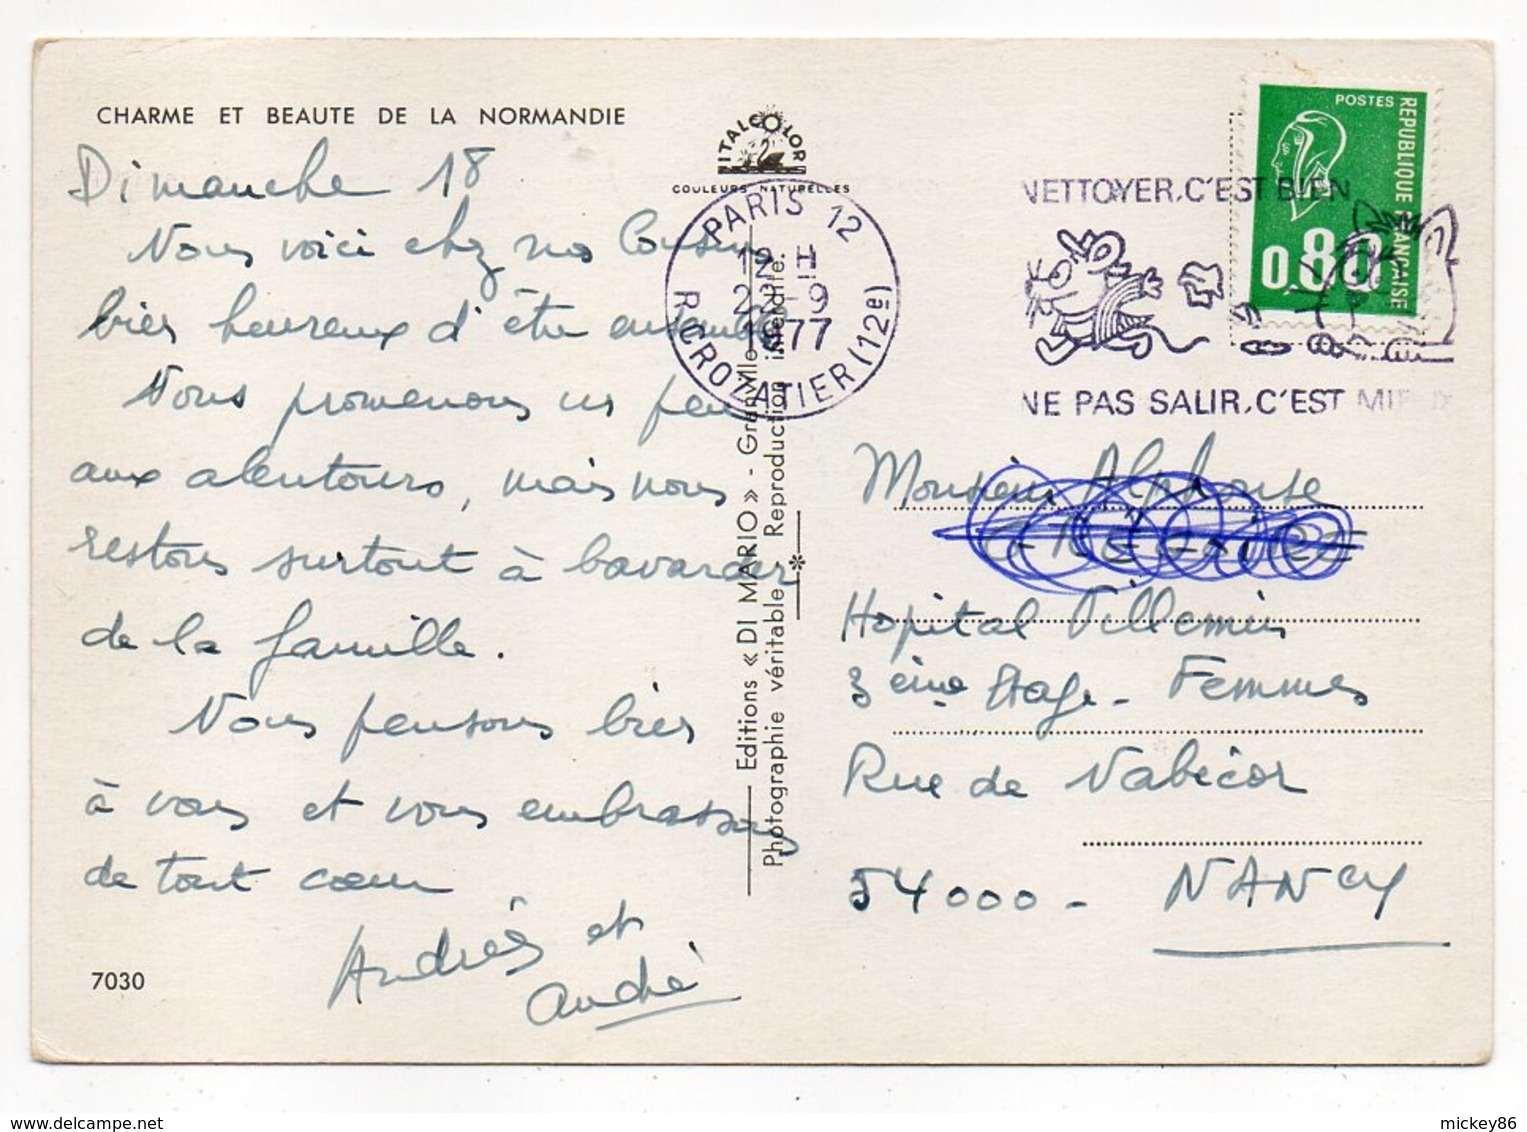 CHARME ET BEAUTE DE LA NORMANDIE
Dimanche 18
Nous voici chez nos Cousins
bien heureux d'être ensemble
Nous promenons un peu
aux alentours, mais nous
restons surtout à bavarder
de la famille.
Nous pensons bien
à vous et vous embrassons
de tout coeur
Andrée et
André
7030
ITALCOLOR
COULEURS NATURELLES
PARIS 12
12 H
9
1977
R. CROZATIER (12e)
Editions « DI MARIO » - Granville
Photographie véritable. Reproduction interdite.
NETTOYER, C'EST BIEN
NE PAS SALIR, C'EST MIEUX
POSTES
REPUBLIQUE FRANÇAISE
0.80
Monsieur Alphonse
Hopital Villemin
3 ème Etage - Femmes
Rue de Nabécor
54000 - NANCY
mickey86